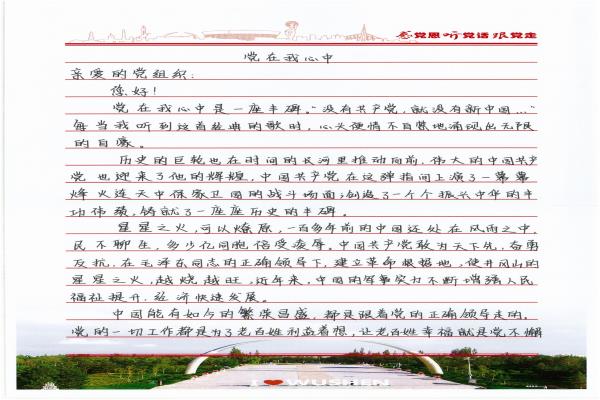 感党恩 听党话 跟党走
党在我心中
亲爱的党组织:
您好!
党在我心中是一座丰碑。"没有共产党,就没有新中国..."
每当我听到这首经典的歌时,心头便情不自禁地涌现出无限
的自豪。
历史的巨轮也在时间的长河里推动向前,伟大的中国共产
党也迎来了他的辉煌,中国共产党在这弹指间上演了一幕幕
烽火连天中保家卫国的战斗场面;创造了一个个振兴中华的丰
功伟绩,铸就了一座座历史的丰碑。
星星之火,可以燎原,一百多年前的中国还处在风雨之中,
民不聊生,多少亿同胞倍受凌辱。中国共产党敢为天下先,奋勇
反抗,在毛泽东同志的正确领导下,建立革命根据地,使井冈山的
星星之火,越烧越旺,近年来,中国的军事实力不断增强人民
福祉提升,经济快速发展。
中国能有如今的繁荣昌盛,都是跟着党的正确领导走的,
党的一切工作都是为了老百姓利益着想,让老百姓幸福就是党不懈
I ❤ WUSHEN